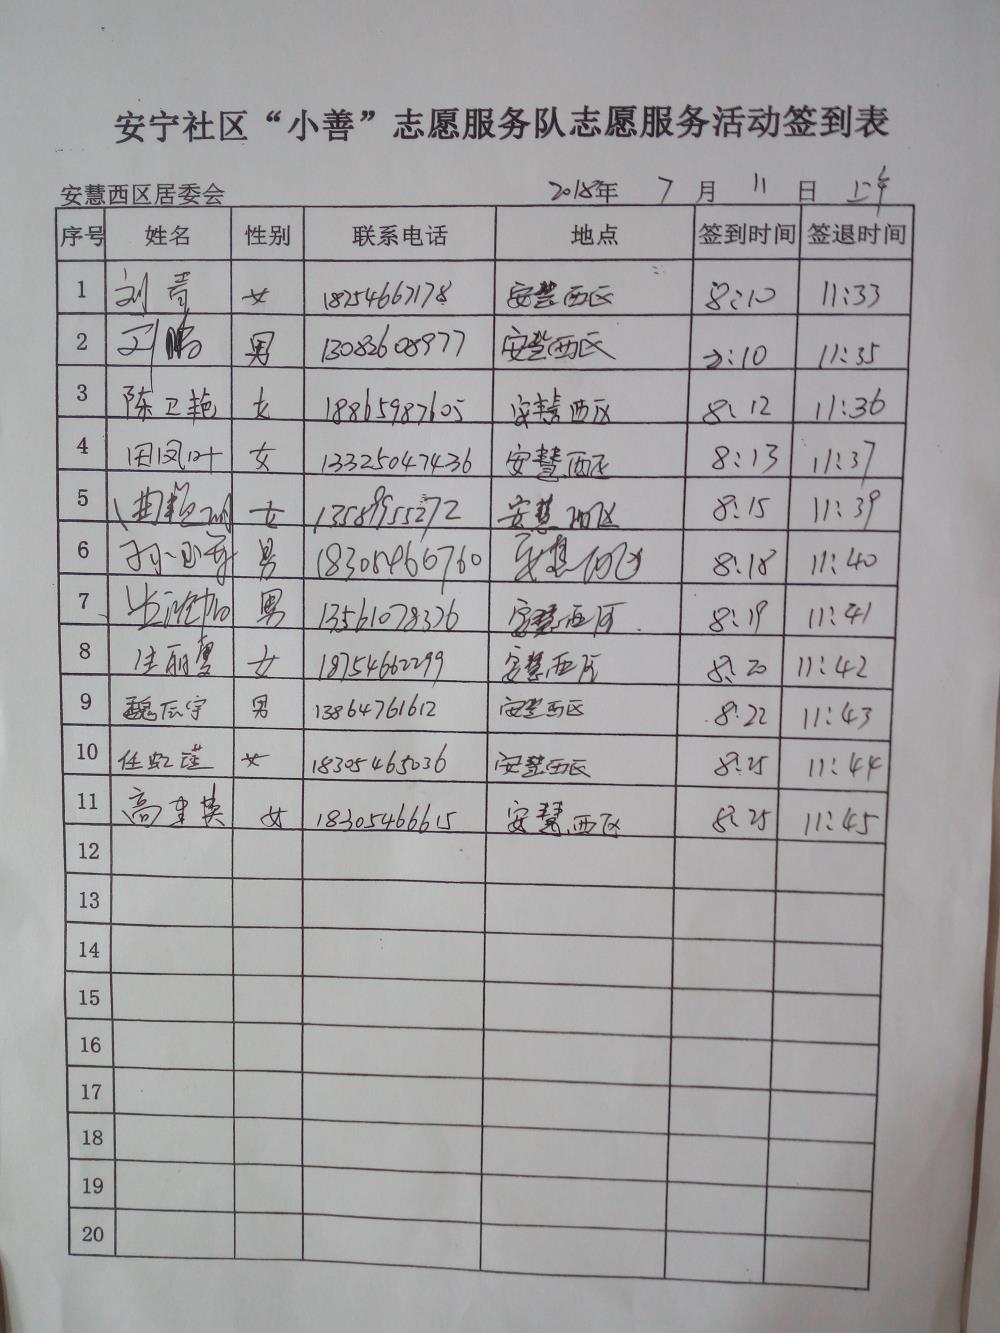 安宁社区“小善”志愿服务队志愿服务活动签到表
安慧西区居委会 2018年 7 月 11 日 上午
序号 姓名 性别 联系电话 地点 签到时间 签退时间
1 刘青 女 18254667178 安慧西区 8:10 11:33
2 刘鹏 男 13082608977 安慧西区 :10 11:35
3 陈卫艳 女 18865987605 安慧西区 8:12 11:36
4 田凤叶 女 13325047436 安慧西区 8:13 11:37
5 女 13589955272 安慧西区 8:15 11:39
6 男 18305466760 安慧西区 8:18 11:40
7 男 13561078326 安慧西区 8:19 11:41
8 女 18754662299 安慧西区 8:20 11:42
9 魏辰宇 男 13864761612 安慧西区 8:22 11:43
10 任虹瑾 女 18305465036 安慧西区 8:25 11:44
11 高建英 女 18305466615 安慧西区 8:25 11:45
12
13
14
15
16
17
18
19
20